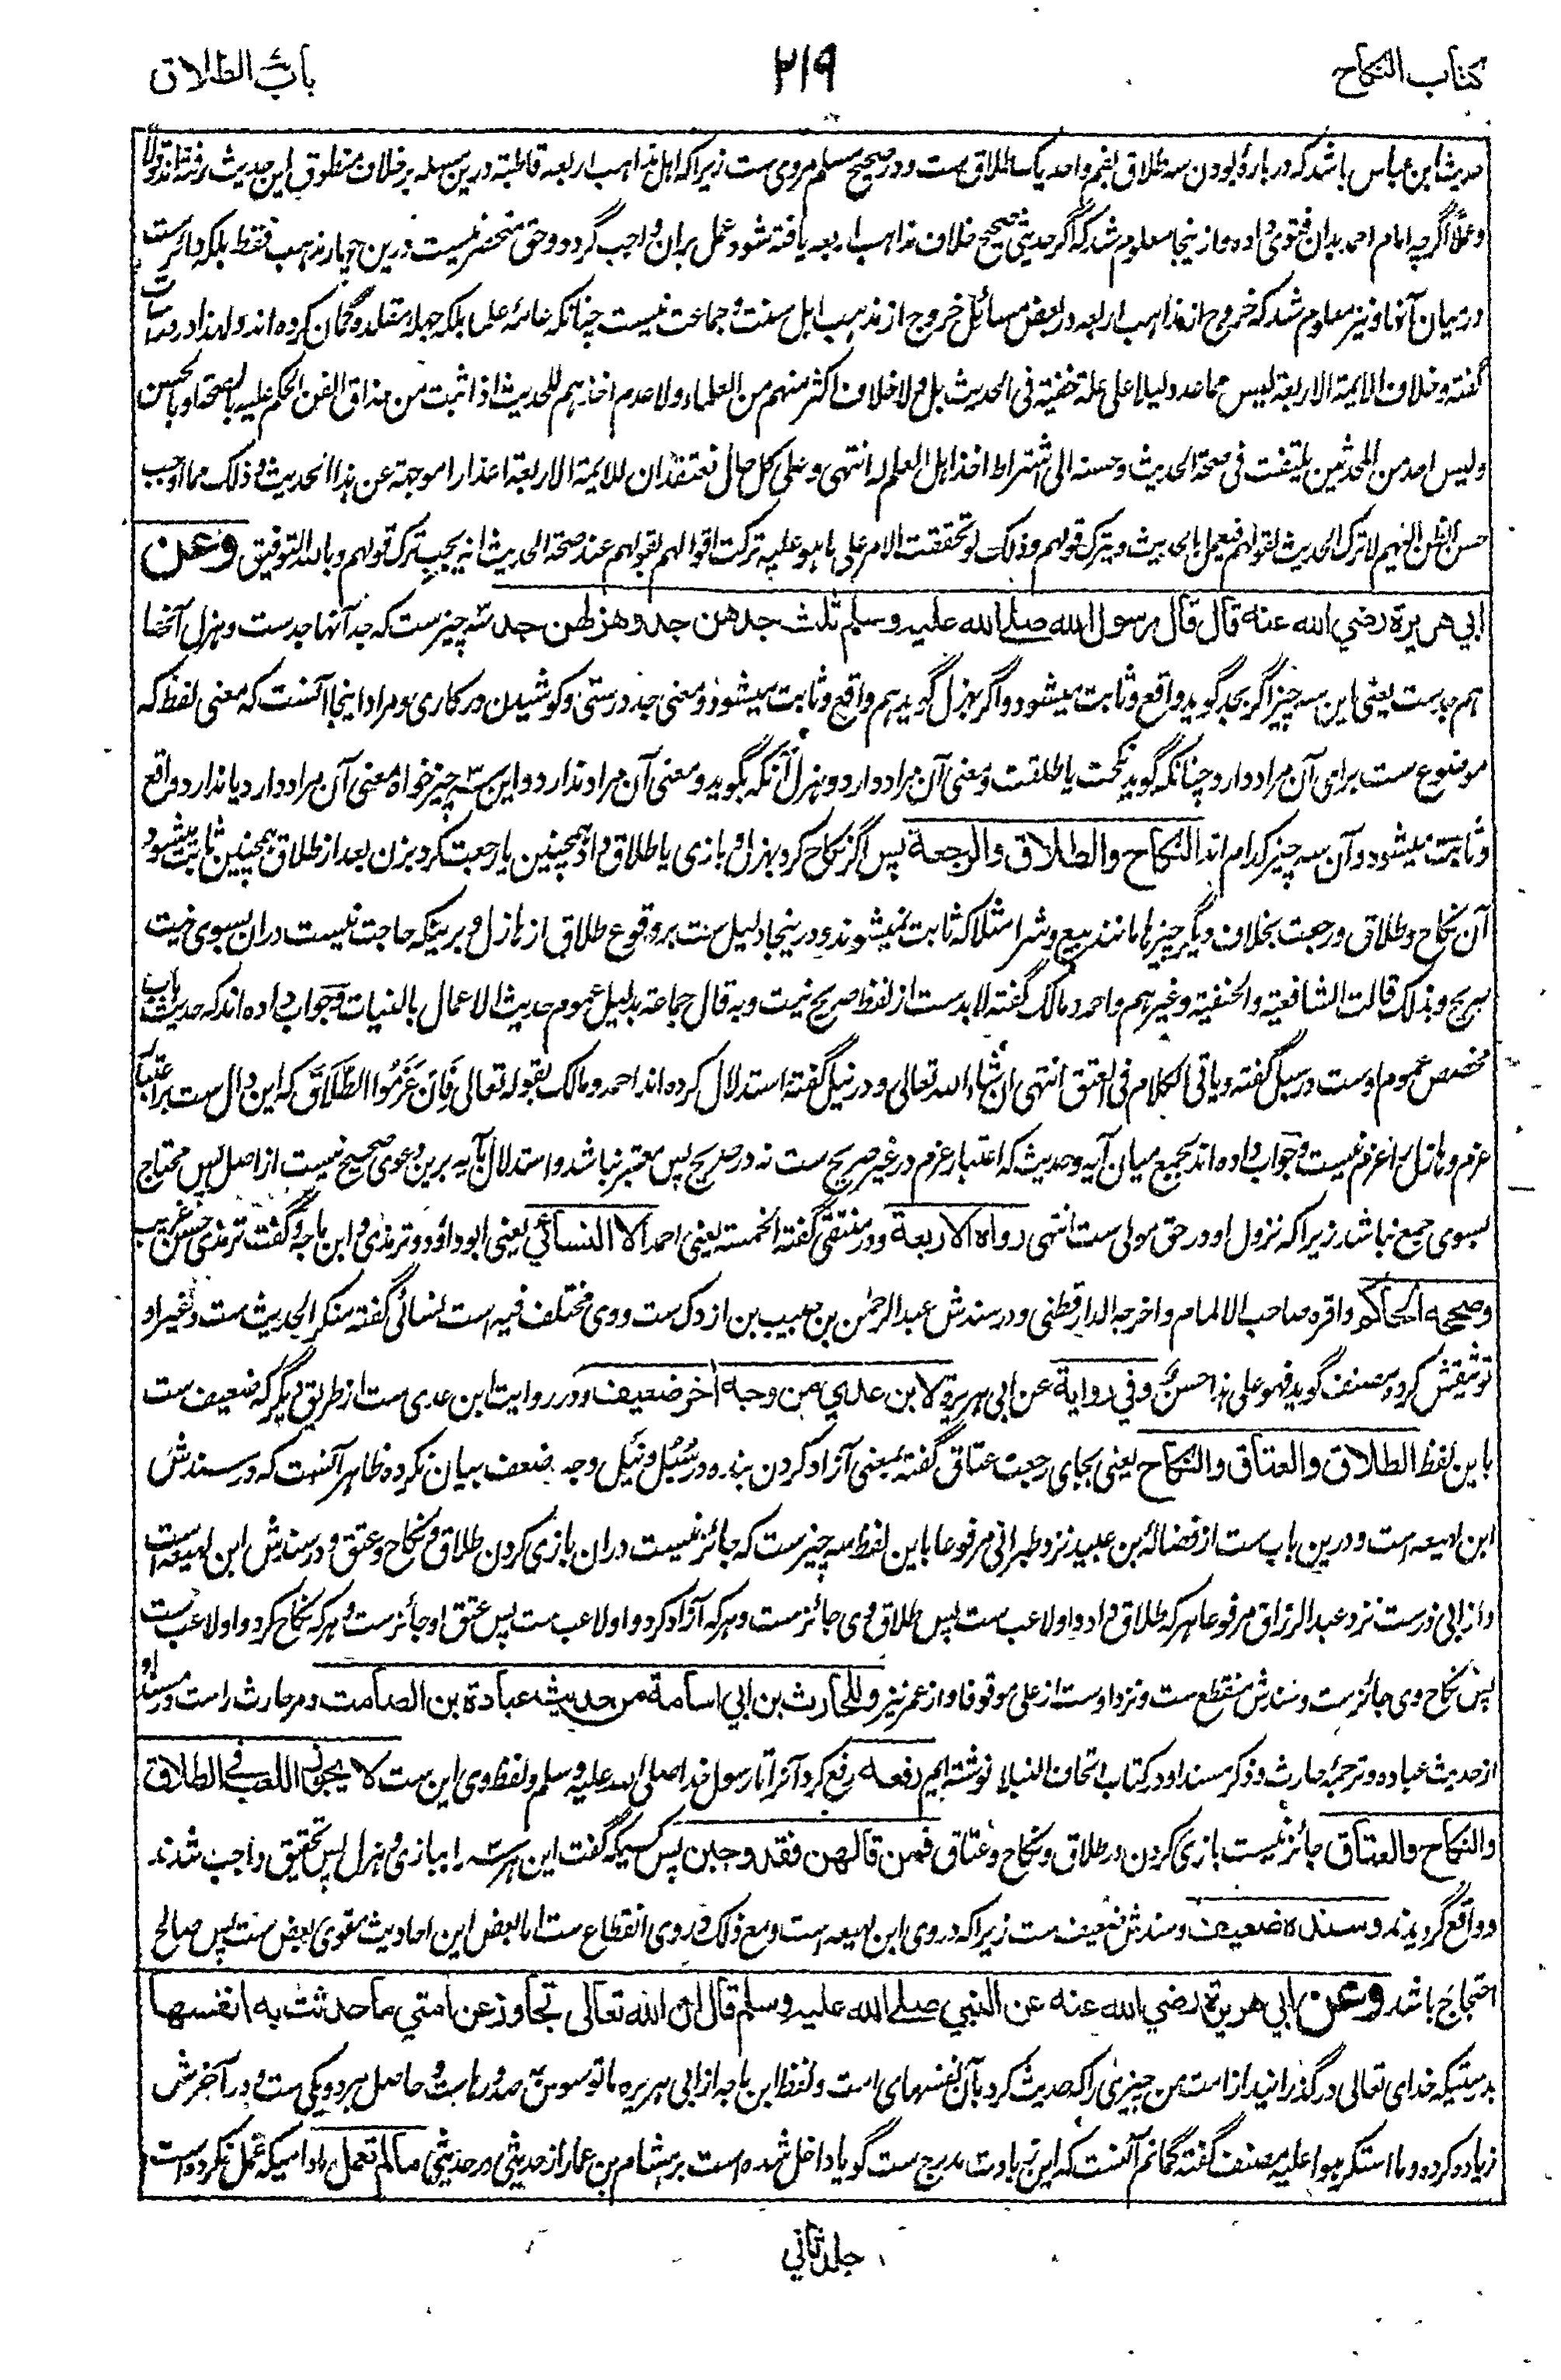 كتاب النكاح
۲۱۹
باب الطلاق
حدیث ابن عباس باشد که دربارهٔ بودن سه طلاق بفم واحد یک طلاق ست و در صحیح مسلم مروی ست زیرا که اهل مذاهب اربعه قاطبة درین مسئله بر خلاف منطوق این حدیث رفته اند قولا
وعملا اگرچه امام احمد بدان فتوی داده و ازینجا معلوم شد که اگر حدیثی صحیح خلاف مذاهب اربعه یافته شود عمل بران واجب گردد و حق منحصر نیست درین چهار مذهب فقط بلکه دائرست
درمیان آنها و نیز معلوم شد که خروج از مذاهب اربعه در بعض مسائل خروج از مذهب اهل سنت و جماعت نیست چنانکه عامهٔ علما بلکه جهلهٔ مقلده گمان کرده اند ولهذا در دراسات
گفته وخلاف الایمة الاربعة لیس مما عد دلیلا علی علة خفیة فی الحدیث بل ولا خلاف اکثر منهم من العلماء ولا عدم اخذهم للحدیث اذا ثبت من مذاق الفن الحکم علیه بالصحة او بالحسن
ولیس احد من المحدثین یلتفت فی صحة الحدیث وحسنه الی اشتراط اخذ اهل العلم له انتهی وعلی کل حال نعتقد ان للایمة الاربعة اعذارا موجهة عن هذا الحدیث وذلک مما اوجب
حسن الظن الیهم لا ترک الحدیث لقولهم فیعمل بالحدیث ویترک قولهم وذلک لو تحققت الامر علی ما هو علیه ترکت اقوالهم بقولهم عند صحة الحدیث انه یجب ترک قولهم وبالله التوفیق وعن
ابي هريرة رضي الله عنه قال قال رسول الله صلى الله عليه وسلم ثلث جدهن جد وهزلهن جد سه چیزست که جد آنها جدست و هزل آنها
هم جدست یعنی این سه چیز اگر بجد گوید واقع و ثابت میشود و اگر بهزل گوید هم واقع و ثابت میشود و معنی جد درستی و کوشیدن در کاری و مراد اینجا آنست که معنی لفظ که
موضوع ست برای آن مراد دارد چنانکه گوید نکحت یا طلقت و معنی آن مراد دارد و هزل آنکه بگوید و معنی آن مراد ندارد و این سه چیز خواه معنی آن مراد دارد یا ندارد واقع
و ثابت میشود و آن سه چیز کدام اند النكاح والطلاق والرجعة پس اگر نکاح کرد بهزل و بازی یا طلاق داد همچنین یا رجعت کرد بزن بعد از طلاق همچنین ثابت میشود
آن نکاح و طلاق و رجعت بخلاف دیگر چیزها مانند بیع و شرا مثلا که ثابت نمیشوند و درینجا دلیل ست بر وقوع طلاق از هازل و برینکه حاجت نیست دران بسوی نیت
صریح وبذلک قالت الشافعیة والحنفیة وغیرهم و احمد و مالک گفته لابدست از لفظ صریح نیت وبه قال جماعة بدلیل عموم حدیث الاعمال بالنیات وجواب داده اند که حدیث باب
مخصص عموم اوست در سبل گفته ویاتی الکلام فی العتق انتهی ان شاء الله تعالی و در نیل گفته استدلال کرده اند احمد و مالک بقوله تعالی فَإِنْ عَزَمُوا الطَّلَاقَ که این دال ست بر اعتبار
عزم و هازل را عزم نیست وجواب داده اند بجمع میان آیه و حدیث که اعتبار عزم در غیر صریح ست نه در صریح پس معتبر نباشد و استدلال بآیه برین دعوی صحیح نیست از اصل پس محتاج
بسوی جمع نباشد زیرا که نزول او در حق مولی ست انتهی رواه الاربعة و در منتقی گفته الخمسة یعنی احمد الا النسائي یعنی ابو داؤد و ترمذی و ابن ماجه و گفت ترمذی حسن غریب
وصححه الحاكم واقره صاحب الالمام واخرجه الدارقطنی و در سندش عبد الرحمن بن حبیب بن اردک ست و وی مختلف فیه است نسائی گفته منکر الحدیث ست و غیر او
توثیقش کرده مصنف گوید فهو علی هذا حسن وفي رواية عن ابی هریرة لابن عدي من وجه اخر ضعيف و در روایت ابن عدی ست از طریق دیگر که ضعیف ست
باین لفظ الطلاق والعتاق والنكاح یعنی بجای رجعت عتاق گفته بمعنی آزاد کردن بنده و در سبل و نیل وجه ضعف بیان نکرده ظاهر آنست که در سندش
ابن لهیعه است و درین باب ست از فضاله بن عبید نزد طبرانی مرفوعا باین لفظ سه چیزست که جائز نیست دران بازی کردن طلاق و نکاح و عتق و در سندش ابن لهیعه است
و از ابی ذرست نزد عبد الرزاق مرفوعا هر که طلاق داد و او لاعب ست پس طلاق وی جائزست و هر که آزاد کرد و او لاعب ست پس عتق او جائزست و هر که نکاح کرد و او لاعب ست
پس نکاح وی جائزست و سندش منقطع ست و نزد اوست از علی موقوفا و از عمر نیز وللحارث بن ابي اسامة من حديث عبادة بن الصامت و مر حارث راست در مسند او
از حدیث عباده و ترجمهٔ حارث و ذکر مسند او در کتاب اتحاف النبلا نوشته ایم رفعه رفع کرد آنرا تا رسول خدا صلی الله علیه وسلم و لفظ وی این ست لا يجوز اللعب في الطلاق
والنكاح والعتاق جائز نیست بازی کردن در طلاق و نکاح و عتاق فمن قالهن فقد وجبن پس کسیکه گفت این هر سه را ببازی و هزل پس تحقیق واجب شدند
و واقع گردیدند وسنده ضعيف و سندش ضعیف ست زیرا که در وی ابن لهیعه است و مع ذلک در وی انقطاع ست اما بعض این احادیث مقوی بعض ست پس صالح
احتجاج باشد وعن ابي هريرة رضي الله عنه عن النبي صلى الله عليه وسلم قال ان الله تعالى تجاوز عن امتي ما حدثت به انفسها
بدرستیکه خدای تعالی درگذرانید از امت من چیزی را که حدیث کرد بآن نفسهای است و لفظ ابن ماجه از ابی هریره ما توسوس به صدورها ست و حاصل هر دو یکی ست و در آخرش
زیاده کرده وما استکرهوا علیه مصنف گفته گمانم آنست که این زیادت مدرج ست گویا داخل شده است بر هشام بن عمار از حدیثی در حدیثی مالم تعمل مادامیکه عمل نکرده است
جلد ثانی